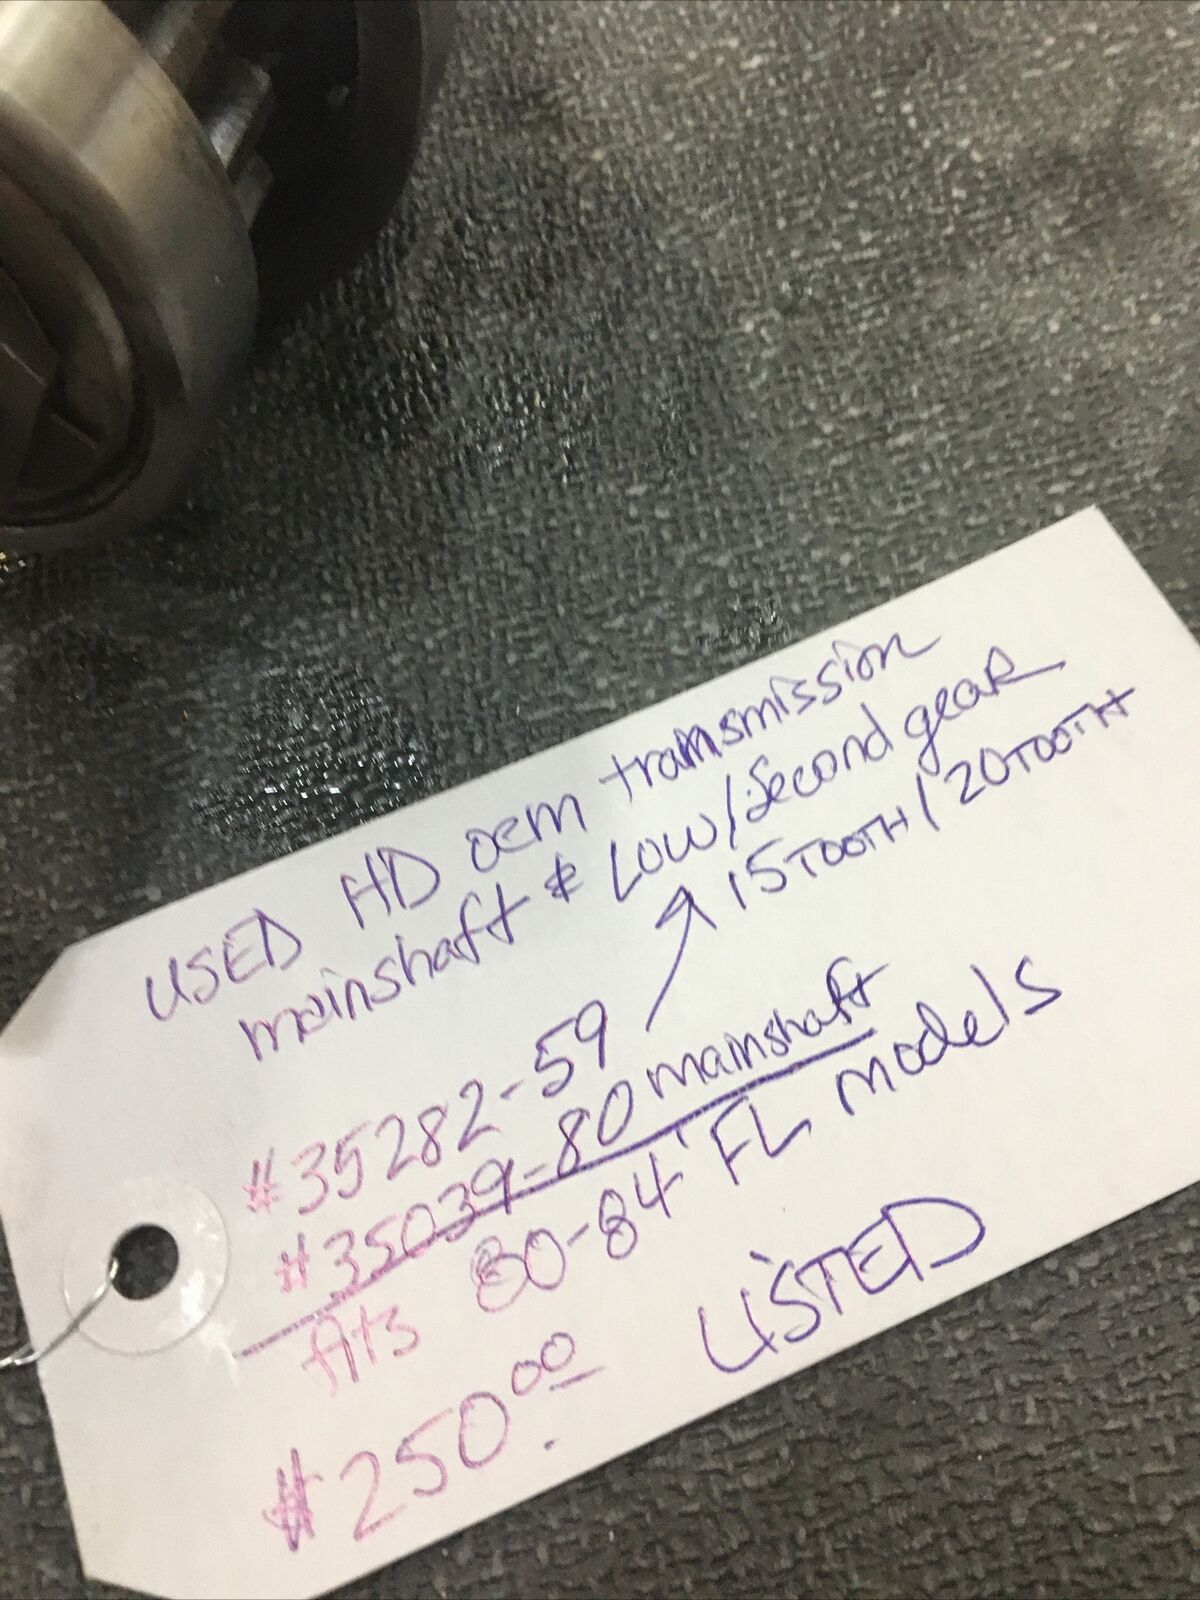 USED HD oem transmission
mainshaft & LOW/Second gear
15TOOTH/20TOOTH
#35282-59
#35039-80 mainshaft
fits 80-84' FL models
#250.00 LISTED